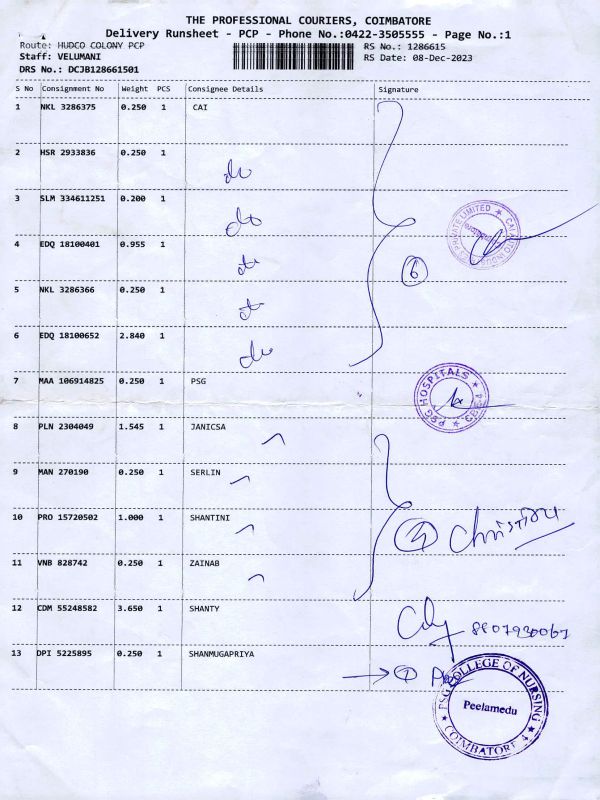 THE PROFESSIONAL COURIERS, COIMBATORE
Delivery Runsheet - PCP - Phone No.:0422-3505555 - Page No.:1
Route: HUDCO COLONY PCP RS No.: 1286615
Staff: VELUMANI RS Date: 08-Dec-2023
DRS No.: DCJB128661501
S No Consignment No Weight PCS Consignee Details Signature
1 NKL 3286375 0.250 1 CAI
2 HSR 2933836 0.250 1 do
3 SLM 334611251 0.200 1 do
4 EDQ 18100401 0.955 1 do
5 NKL 3286366 0.250 1 do
6 EDQ 18100652 2.840 1 do
6
PRIVATE LIMITED ★ CAI
7 MAA 106914825 0.250 1 PSG
PSG HOSPITALS ★ CBE-4 ★
8 PLN 2304049 1.545 1 JANICSA
9 MAN 270190 0.250 1 SERLIN
10 PRO 15720502 1.000 1 SHANTINI
4
11 VNB 828742 0.250 1 ZAINAB
12 CDM 55248582 3.650 1 SHANTY
13 DPI 5225895 0.250 1 SHANMUGAPRIYA
1
PSG COLLEGE OF NURSING
Peelamedu
★ COIMBATORE 4 ★